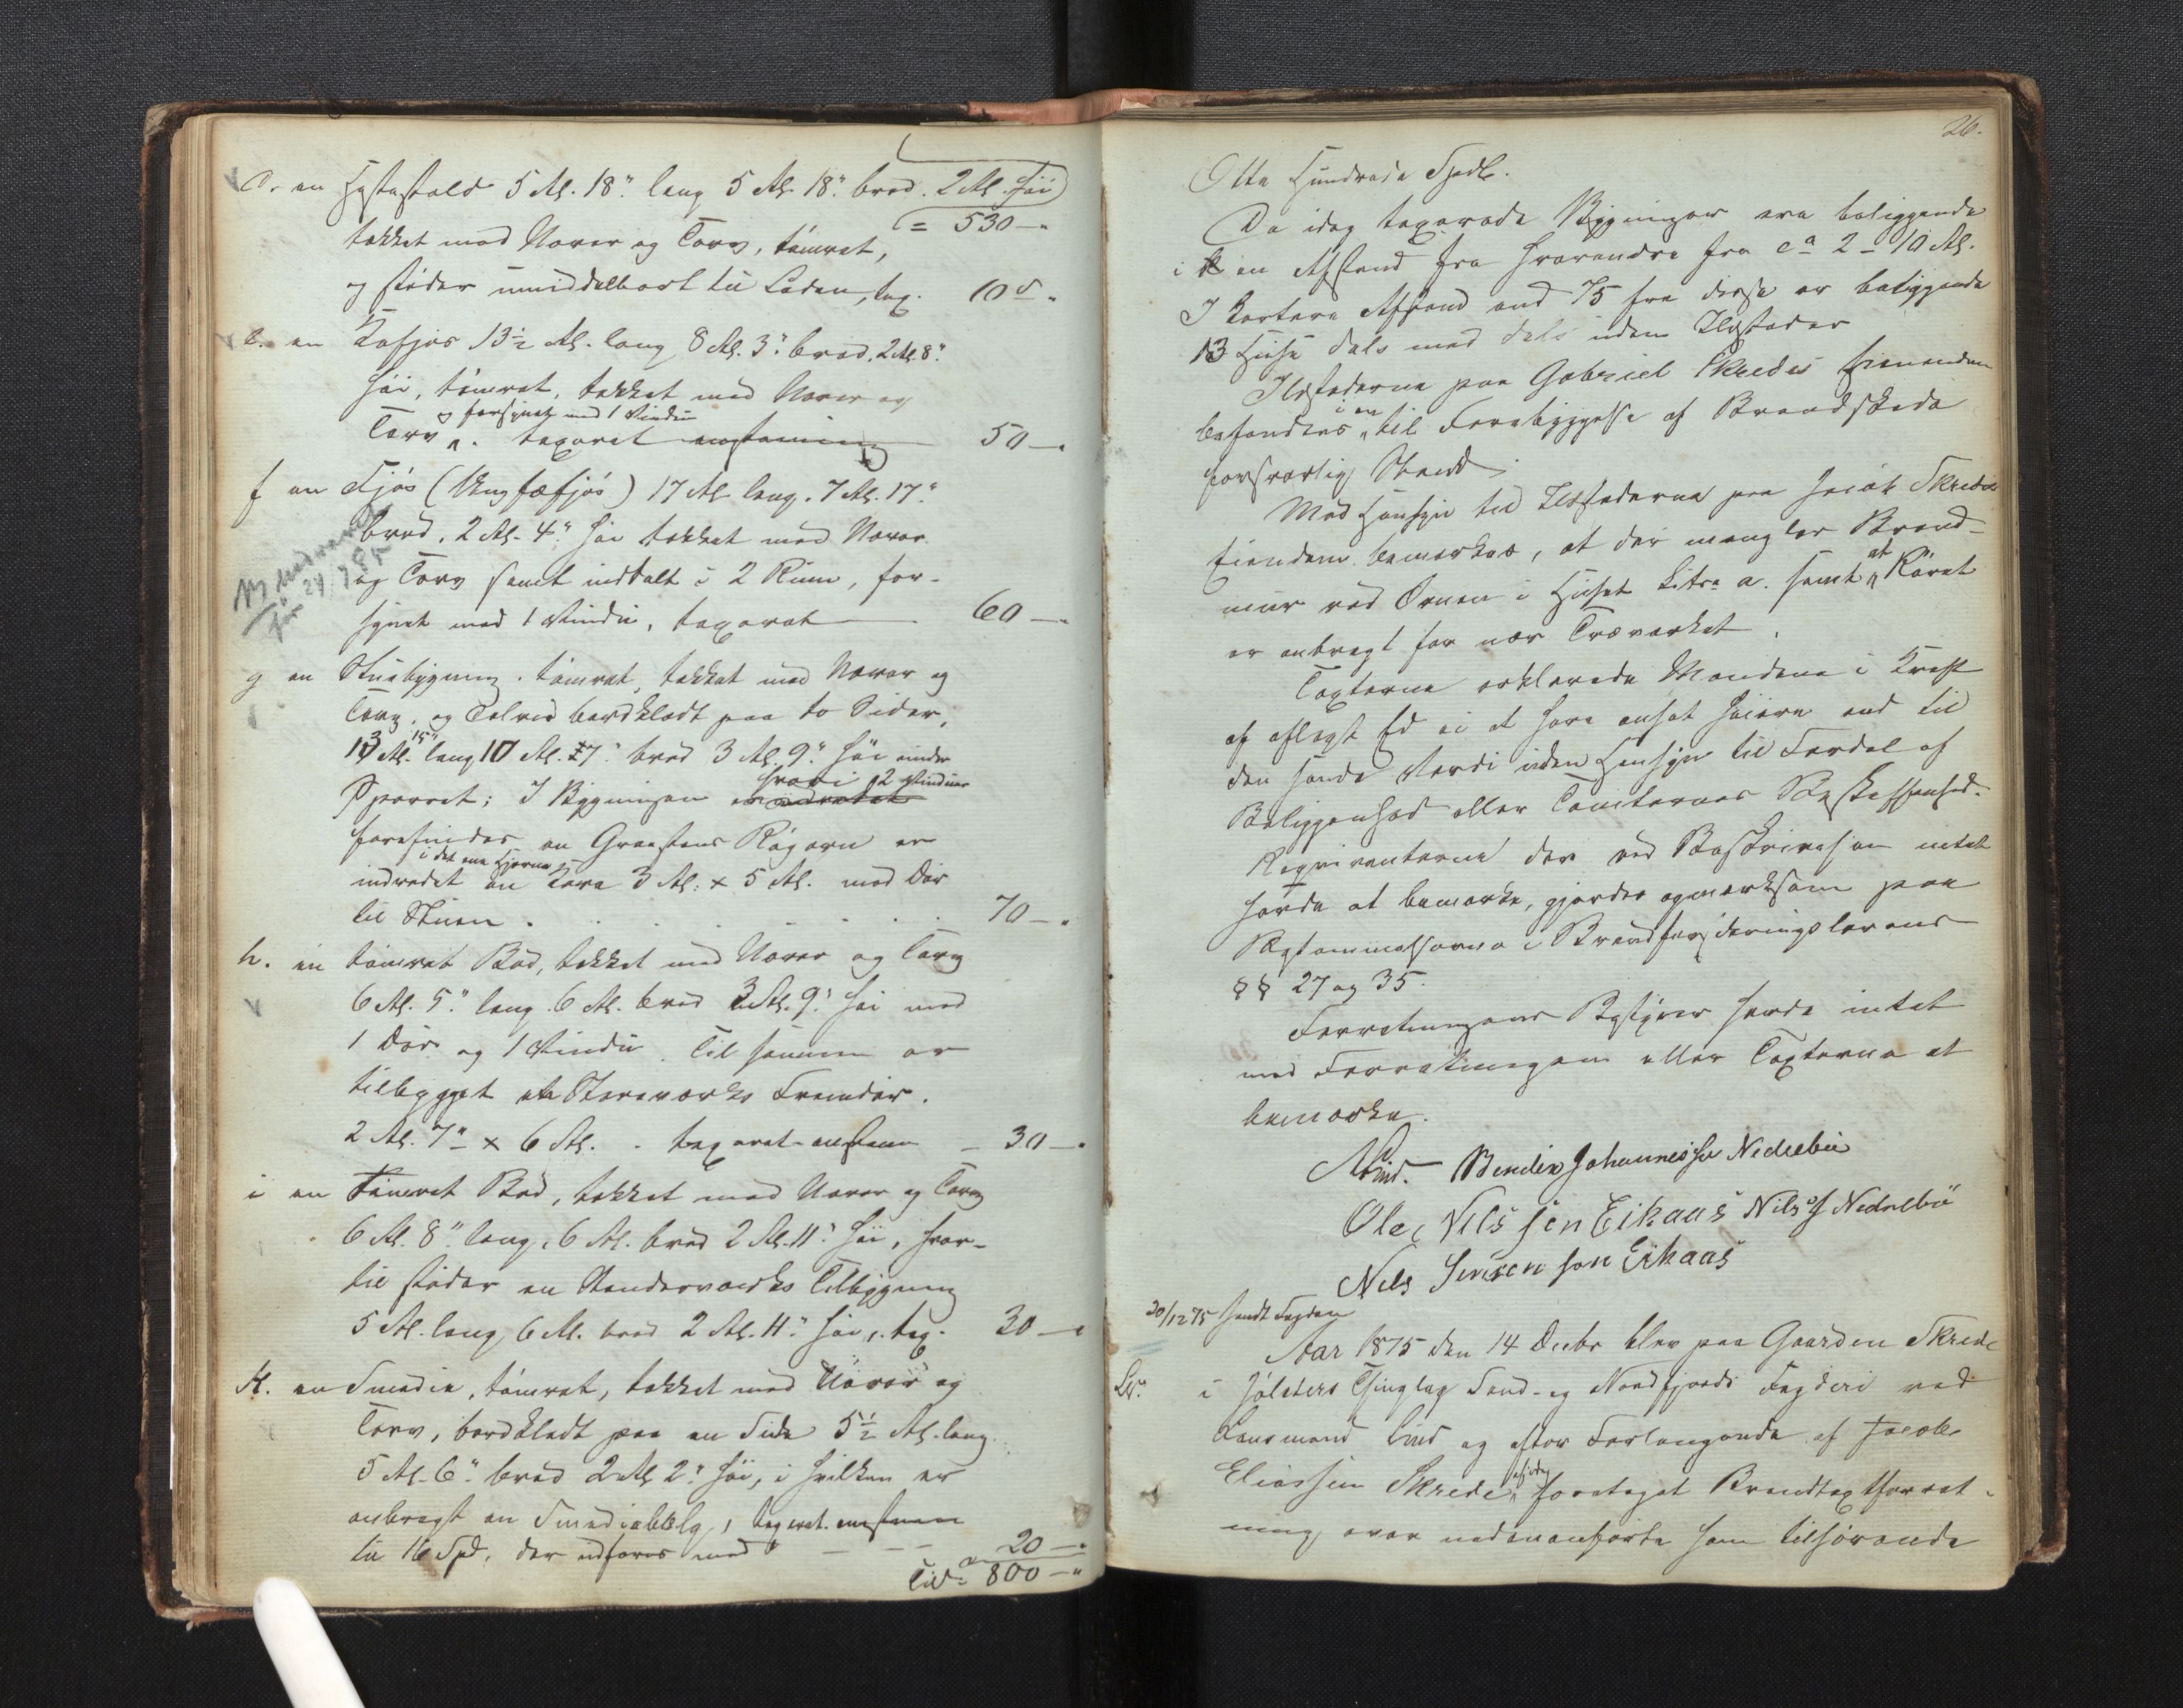 d. en Hestestald 5 Al. 18" lang 5 Al. 18" bred. 2 Al. höi
= 530 – "
tækket med Næver og Torv, tömret,
og støder umiddelbart til Laden, tax. 10 – "
e. en Kofjös 13½ Al. lang 8 Al. 3" bred, 2 Al. 8"
höi, tömret, tækket med Næver og
og forsynet med 1 Vindu
Torv. taxeret 50 – "
f en Fjös (Ungfæfjös) 17 Al. lang. 7 Al. 17"
bred, 2 Al. 4" höi tækket med Næver
og Torv samt inddelt i 2 Rum, for-
synet med 1 Vindu, taxeret 60 – "
g en Stuebygning. tömret, tækket med Næver og
Torv, og Delvis bordklædt paa to Sider,
13 Al. 15" lang 10 Al. 7" bred 3 Al. 9" höi under
hvori 2 Vinduer
Sparret; I Bygningen
forefindes en Graastens Rögovn er
i det ene Hjørne
indredet en Kove 3 Al. x 5 Al. med Dör
til Stuen. 70 – "
h. en tömret Bod, tækket med Næver og Torv
6 Al. 5" lang. 6 Al. bred 3 Al. 9" höi med
1 Dör og 1 Vindu. Til samme er
tilbygget et Stavværks Fremdör.
2 Al. 7" x 6 Al. - taxeret – 30 – "
i en Tömret Bod, tækket med Næver og Torv
6 Al. 8" lang, 6 Al. bred 2 Al. 11" höi, hvor-
til støder en Stenderværks Tilbygning
5 Al. lang, 6 Al. bred 2 Al. 11" höi, tax. 30 – "
K. en Smedie, tömret, tækket med Næver og
Torv, bordklædt paa en Side 5½ Al. lang
5 Al. 6" bred 2 Al. 2" höi, i hvilken er
anbragt en Smediebelg, taxeret
til 16 Spd. der udføres med – – – 20 – "
Tils. 800 – "
26.
Otte Hundrede Spdl.
De idag taxerede Bygninger ere beliggende
i en Afstand fra hverandre fra ca 2 – 10 Al.
I kortere Afstand end 75 fra disse er beliggende
13 Huse dels med dels uden Ildsteder
Ildstederne paa Gabriel Skredes Eiendom
i en
befandtes til Forebyggelse af Brandskade
forsvarlig Stand.
Med Hensyn til Ildstederne paa Jacob Skredes
Eiendom bemærkes, at der mangler Brand-
mur ved Ovnen i Huset Litra a. samt at Röret
er anbragt for nær Træværket.
Taxterne erklærede Mændene i Kraft
af aflagt Ed ei at have ansat höiere end til
den sande Værdi uden Hensyn til Fordel af
Beliggenhed eller Tomternes Beskaffenhed.
Reqvirenterne der ved Beskrivelsen intet
havde at bemærke, gjordes opmærksom paa
Bestemmelserne i Brandforsikringslovens
§§ 27 og 35.
Forretningens Bestyrer havde intet
med Forretningen eller Taxterne at
bemærke.
Lind. Bendix Johannessen Nedrebö
Ole Nilssen Eikaas Nils J Nedrebö
Nils Jensen son Eikaas
20/12 75 sendt Fogden
Aar 1875 den 14 Decbr blev paa Gaarden Skrede
i Jölsters Thinglag Sönd- og Nordfjords Fogderi ved
Lensmand Lind og efter Forlangende af Jacob
Eliassen Skrede, foretaget Brandtaxtforret-
ning over nedenanførte ham tilhörende